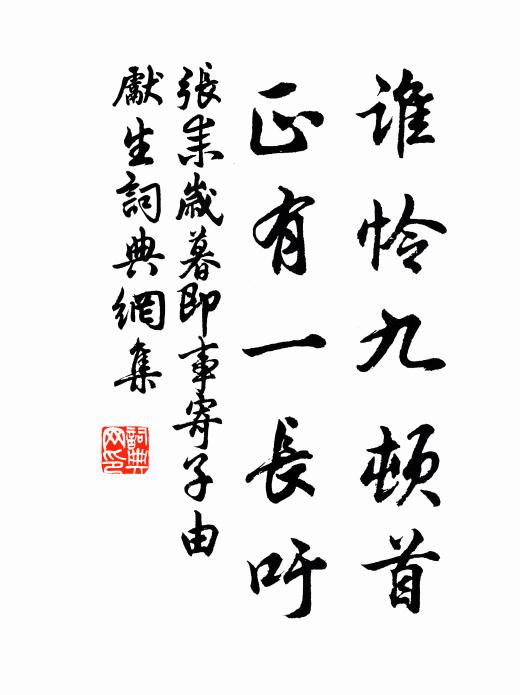 谁怜九顿首
正有一長吁
張耒歲暮即事寄子由
獻生詞典網集
詞典网印